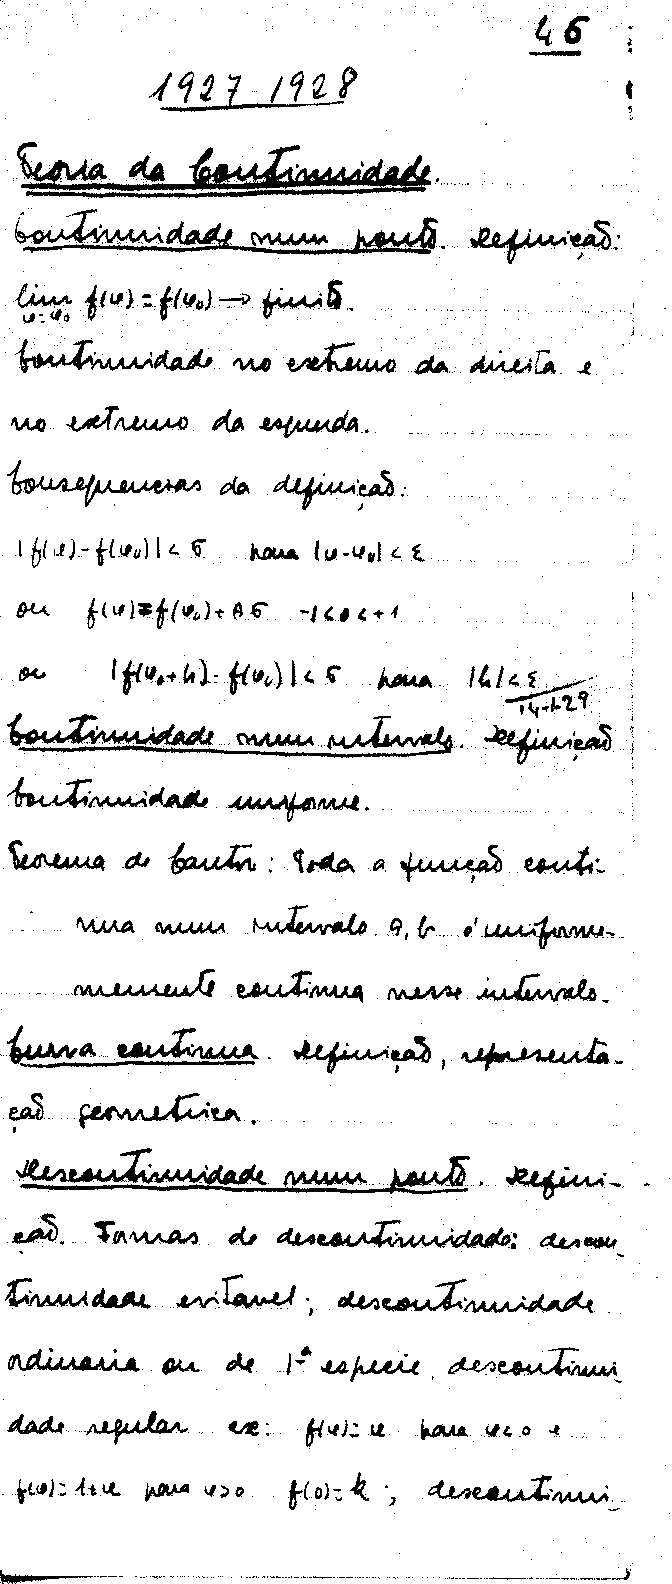 46
1927-1928
Teoria da Continuidade.
Continuidade num ponto. Definição:
lim f(x) = f(x₀) → finito.
x=x₀
Continuidade no extremo da direita e
no extremo da esquerda.
Consequencias da definição:
|f(x)-f(x₀)| < δ para |x-x₀| < ε
ou f(x) = f(x₀) + θδ -1<θ<+1
ou |f(x₀+h)-f(x₀)| < δ para |h| < ε
Continuidade num intervalo. Definição
Continuidade uniforme.
Teorema de Cantor: Toda a função conti-
nua num intervalo a,b é uniforme-
memente continua nesse intervalo.
Curva continua. Definição, representa-
ção geometrica.
Descontinuidade num ponto. Defini-
ção. Formas de descontinuidade: descon-
tinuidade evitavel; descontinuidade
ordinaria ou de 1ª especie, descontinui-
dade regular ex: f(x)=x para x<0 e
f(x)=1+x para x>0 f(0)=k; descontinui-